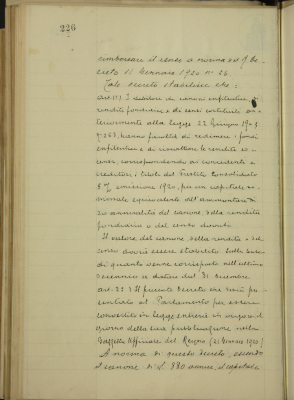 226
rimborsare il censo a norma del R. De-
creto 11 Gennaio 1920 n° 24
Tale decreto stabilisce che:
art. 1°) I debitori di canoni enfiteutici, di
rendite fondiarie e di censi costituiti an-
teriormente alla legge 22 Giugno
n. 263, hanno facoltà di redimere i fondi
enfiteutici e di riscattare le rendite ed i
censi, corrispondendo ai concedenti o
creditori, i titoli del Prestito consolidato
5% emissione 1920, per un capitale no-
minale equivalente all'ammontare di
annualità del canone, della rendita
fondiaria o del censo dovuto.
Il valore del canone della rendita o del
censo dovrà essere stabilito sulla base
di quanto venne corrisposto nell'ultimo
decennio a datare dal 31 Dicembre.
art. 2°) Il presente Decreto che sarà pre-
sentato al Parlamento per essere
convertito in legge entrerà in vigore il
giorno della sua pubblicazione nella
Gazzetta Ufficiale del Regno (21 Gennaio 1920)
A norma di questo decreto, essendo
il canone di £. 880 annue, il capitale